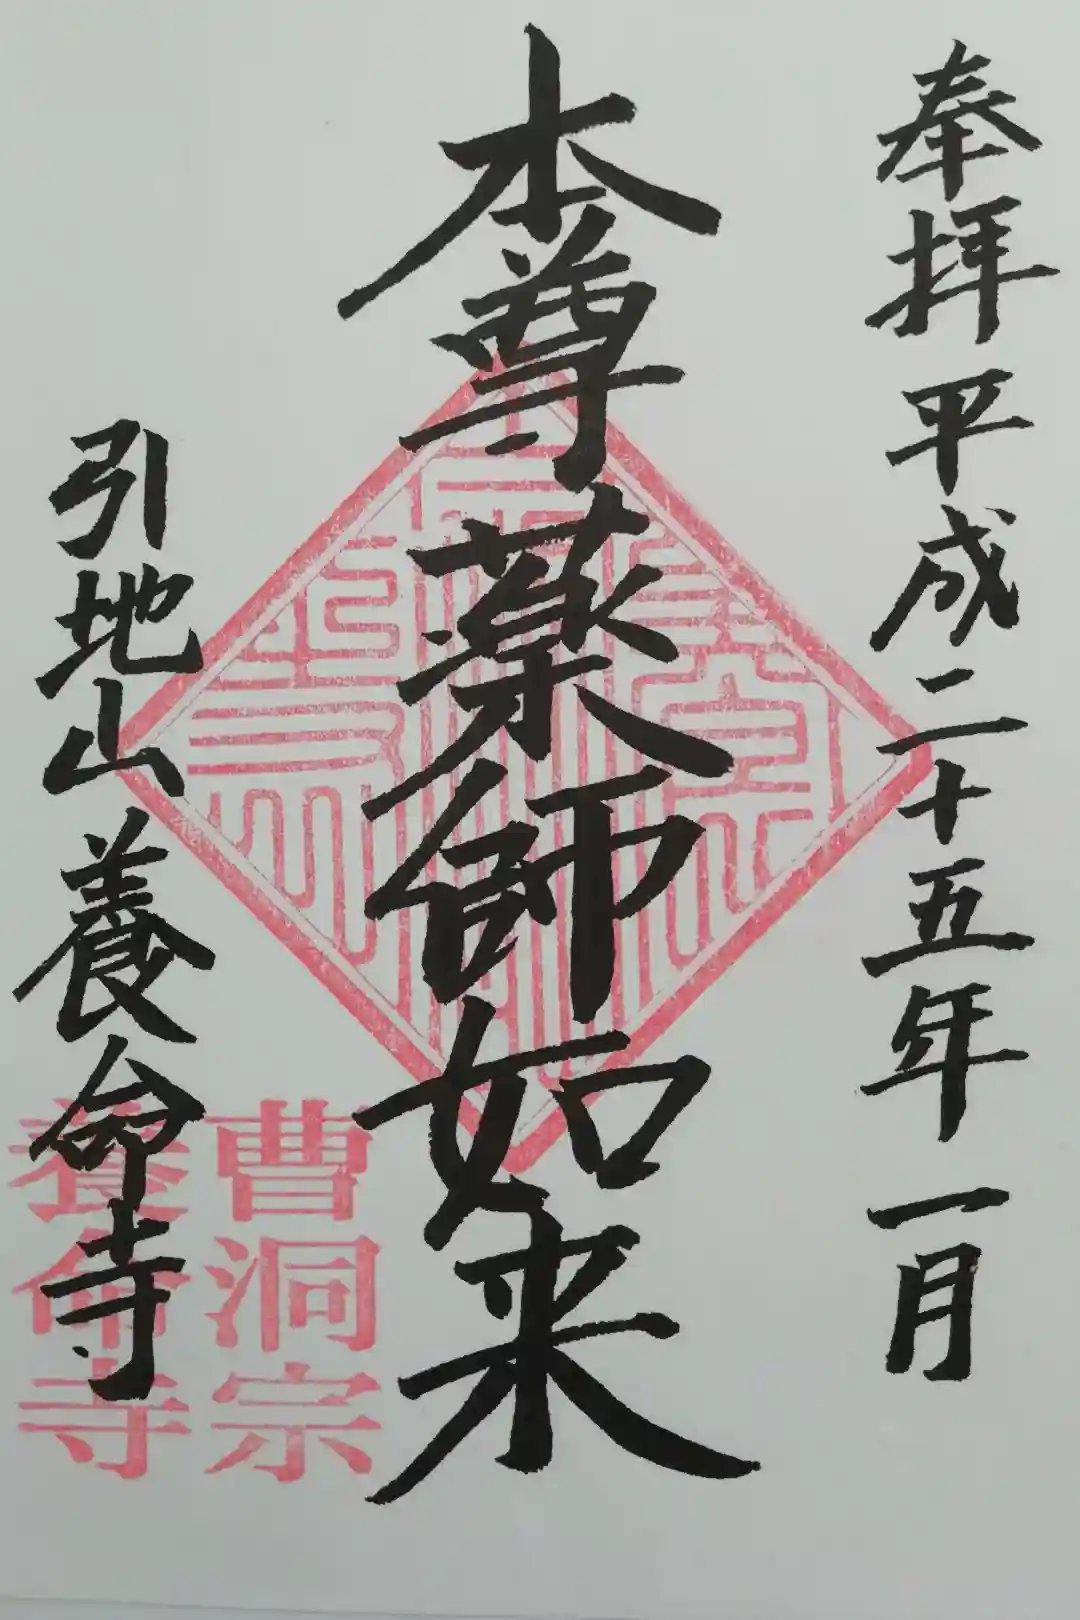 奉拝 平成二十五年 一月
本尊薬師如来
引地山養命寺
曹洞宗
養命寺